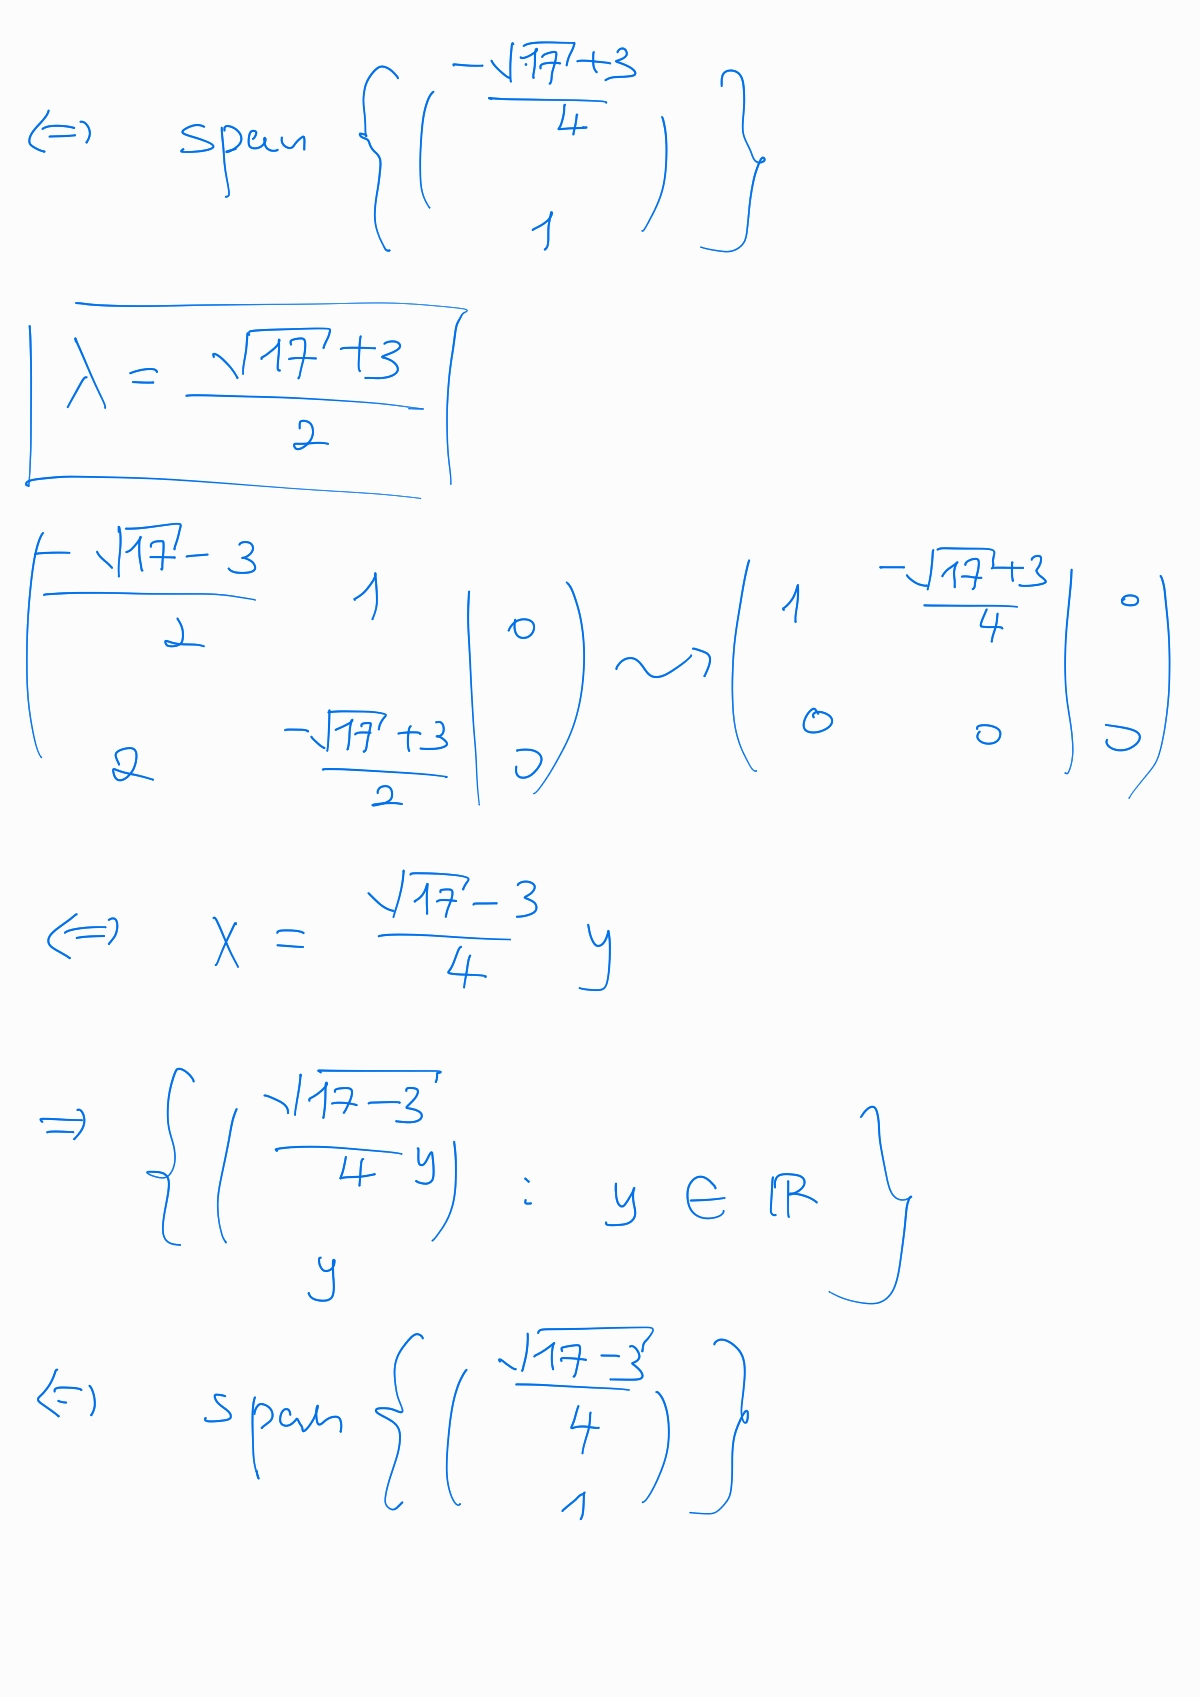 ⇔ span { ( (-√17 + 3)/4 , 1 ) }
λ = (√17 + 3)/2
( (-√17 - 3)/2  1 | 0 ; 2  (-√17 + 3)/2 | 0 ) ⇝ ( 1  (-√17 + 3)/4 | 0 ; 0  0 | 0 )
⇔ x = (√17 - 3)/4 y
⇒ { ( √(17-3)/4 y , y ) : y ∈ ℝ }
⇔ span { ( √(17-3)/4 , 1 ) }